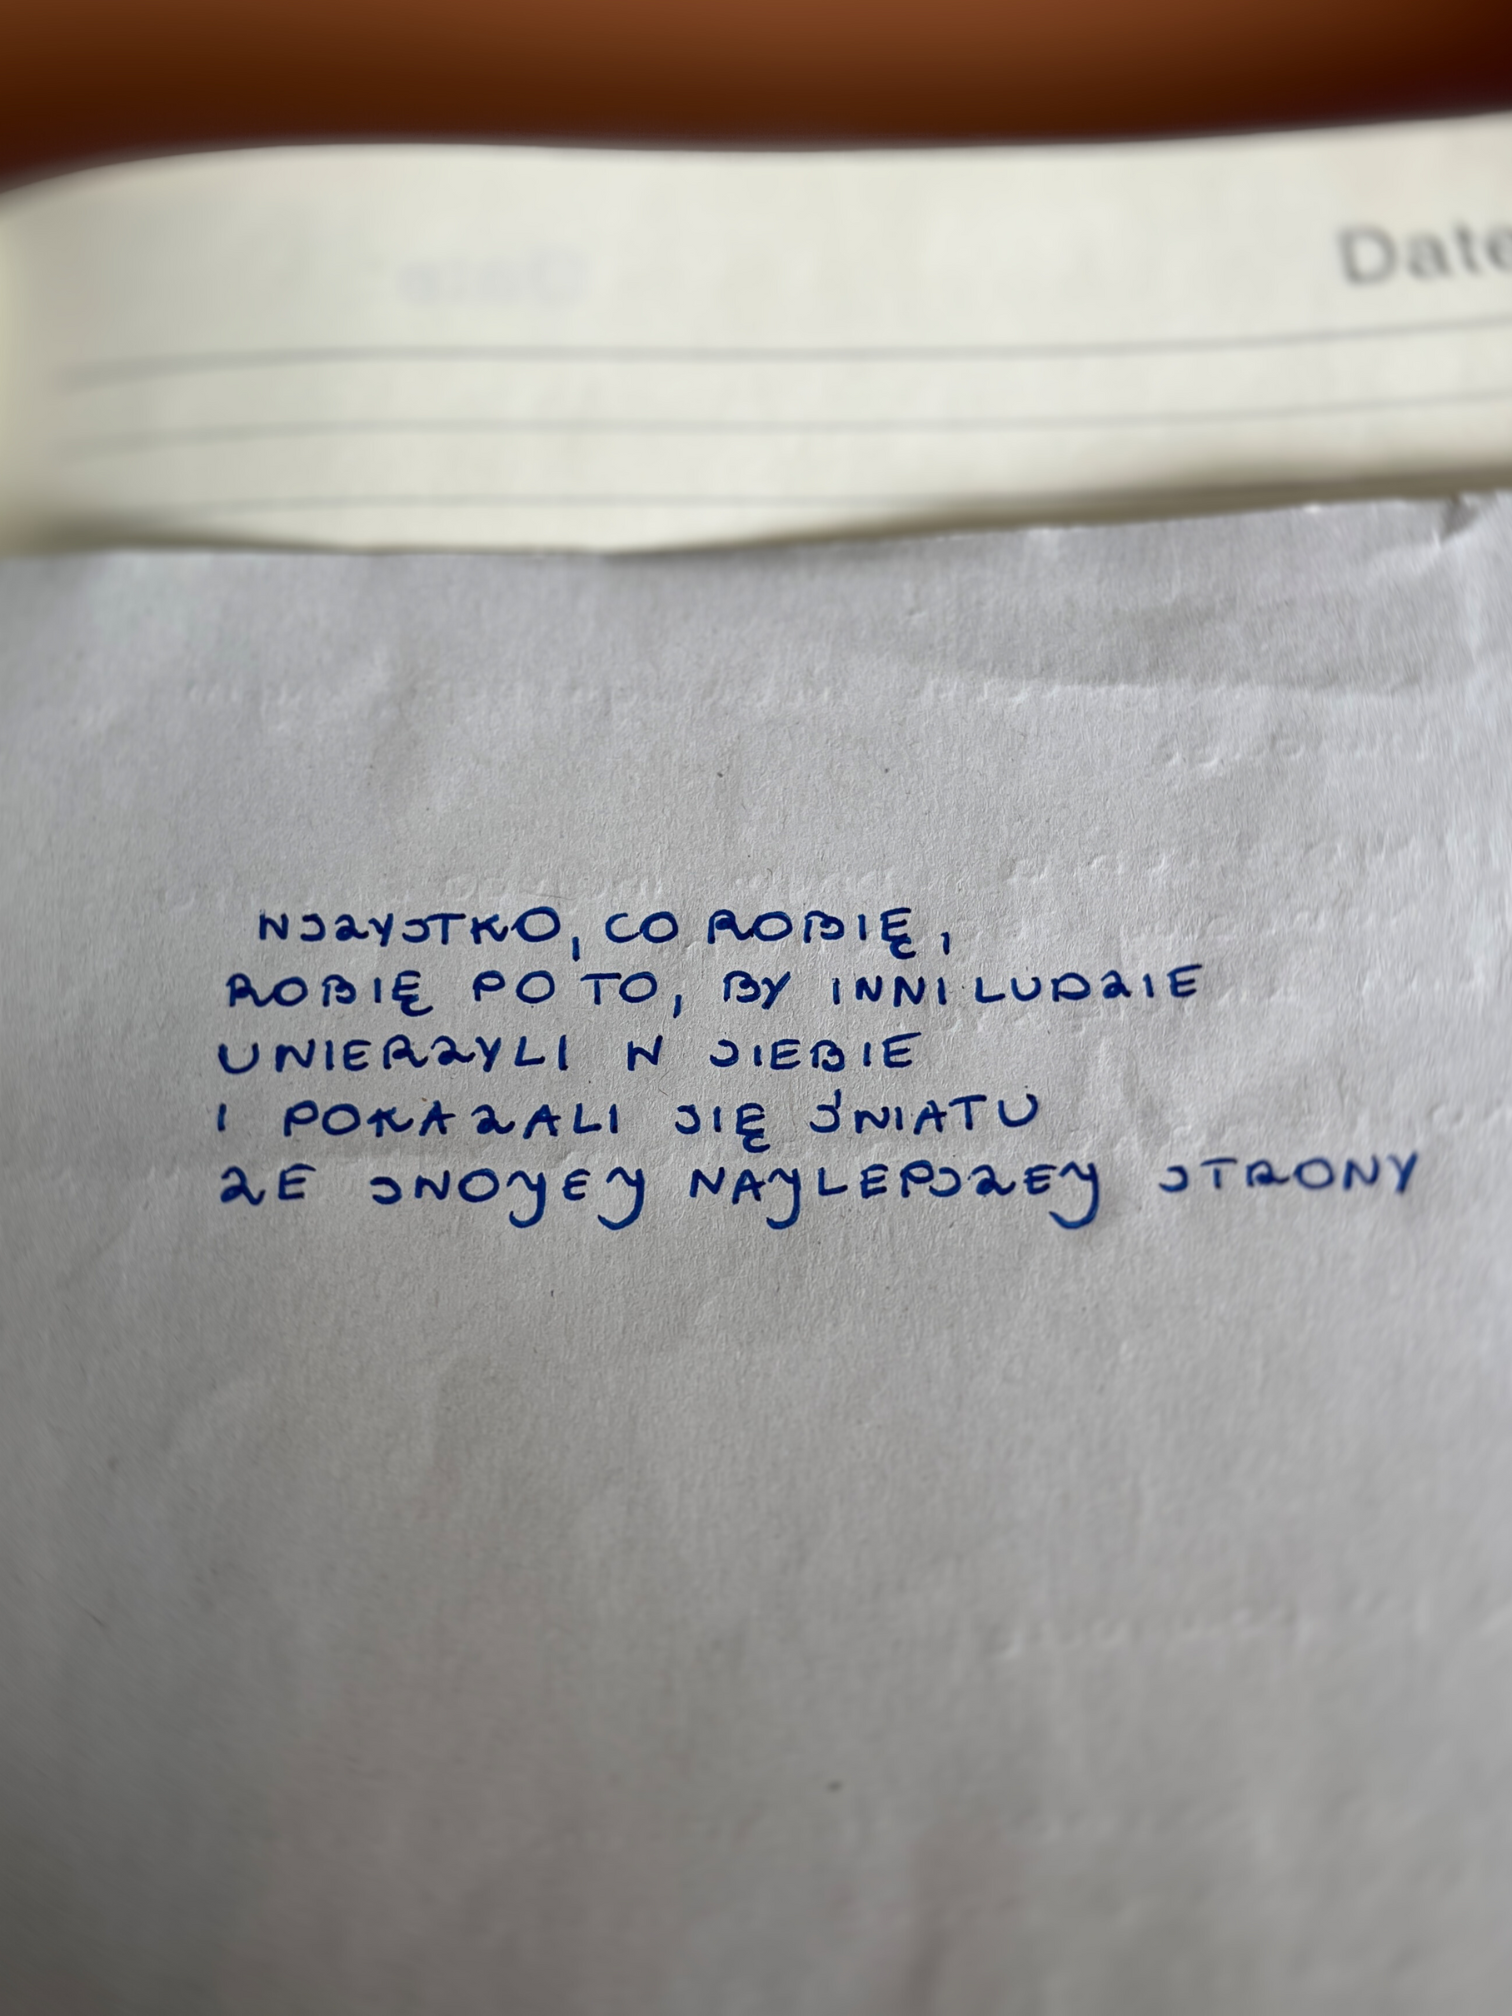 Date
WSZYSTKO, CO ROBIĘ,
ROBIĘ PO TO, BY INNI LUDZIE
UWIERZYLI W SIEBIE
I POKAZALI SIĘ ŚWIATU
ZE SWOJEJ NAJLEPSZEJ STRONY